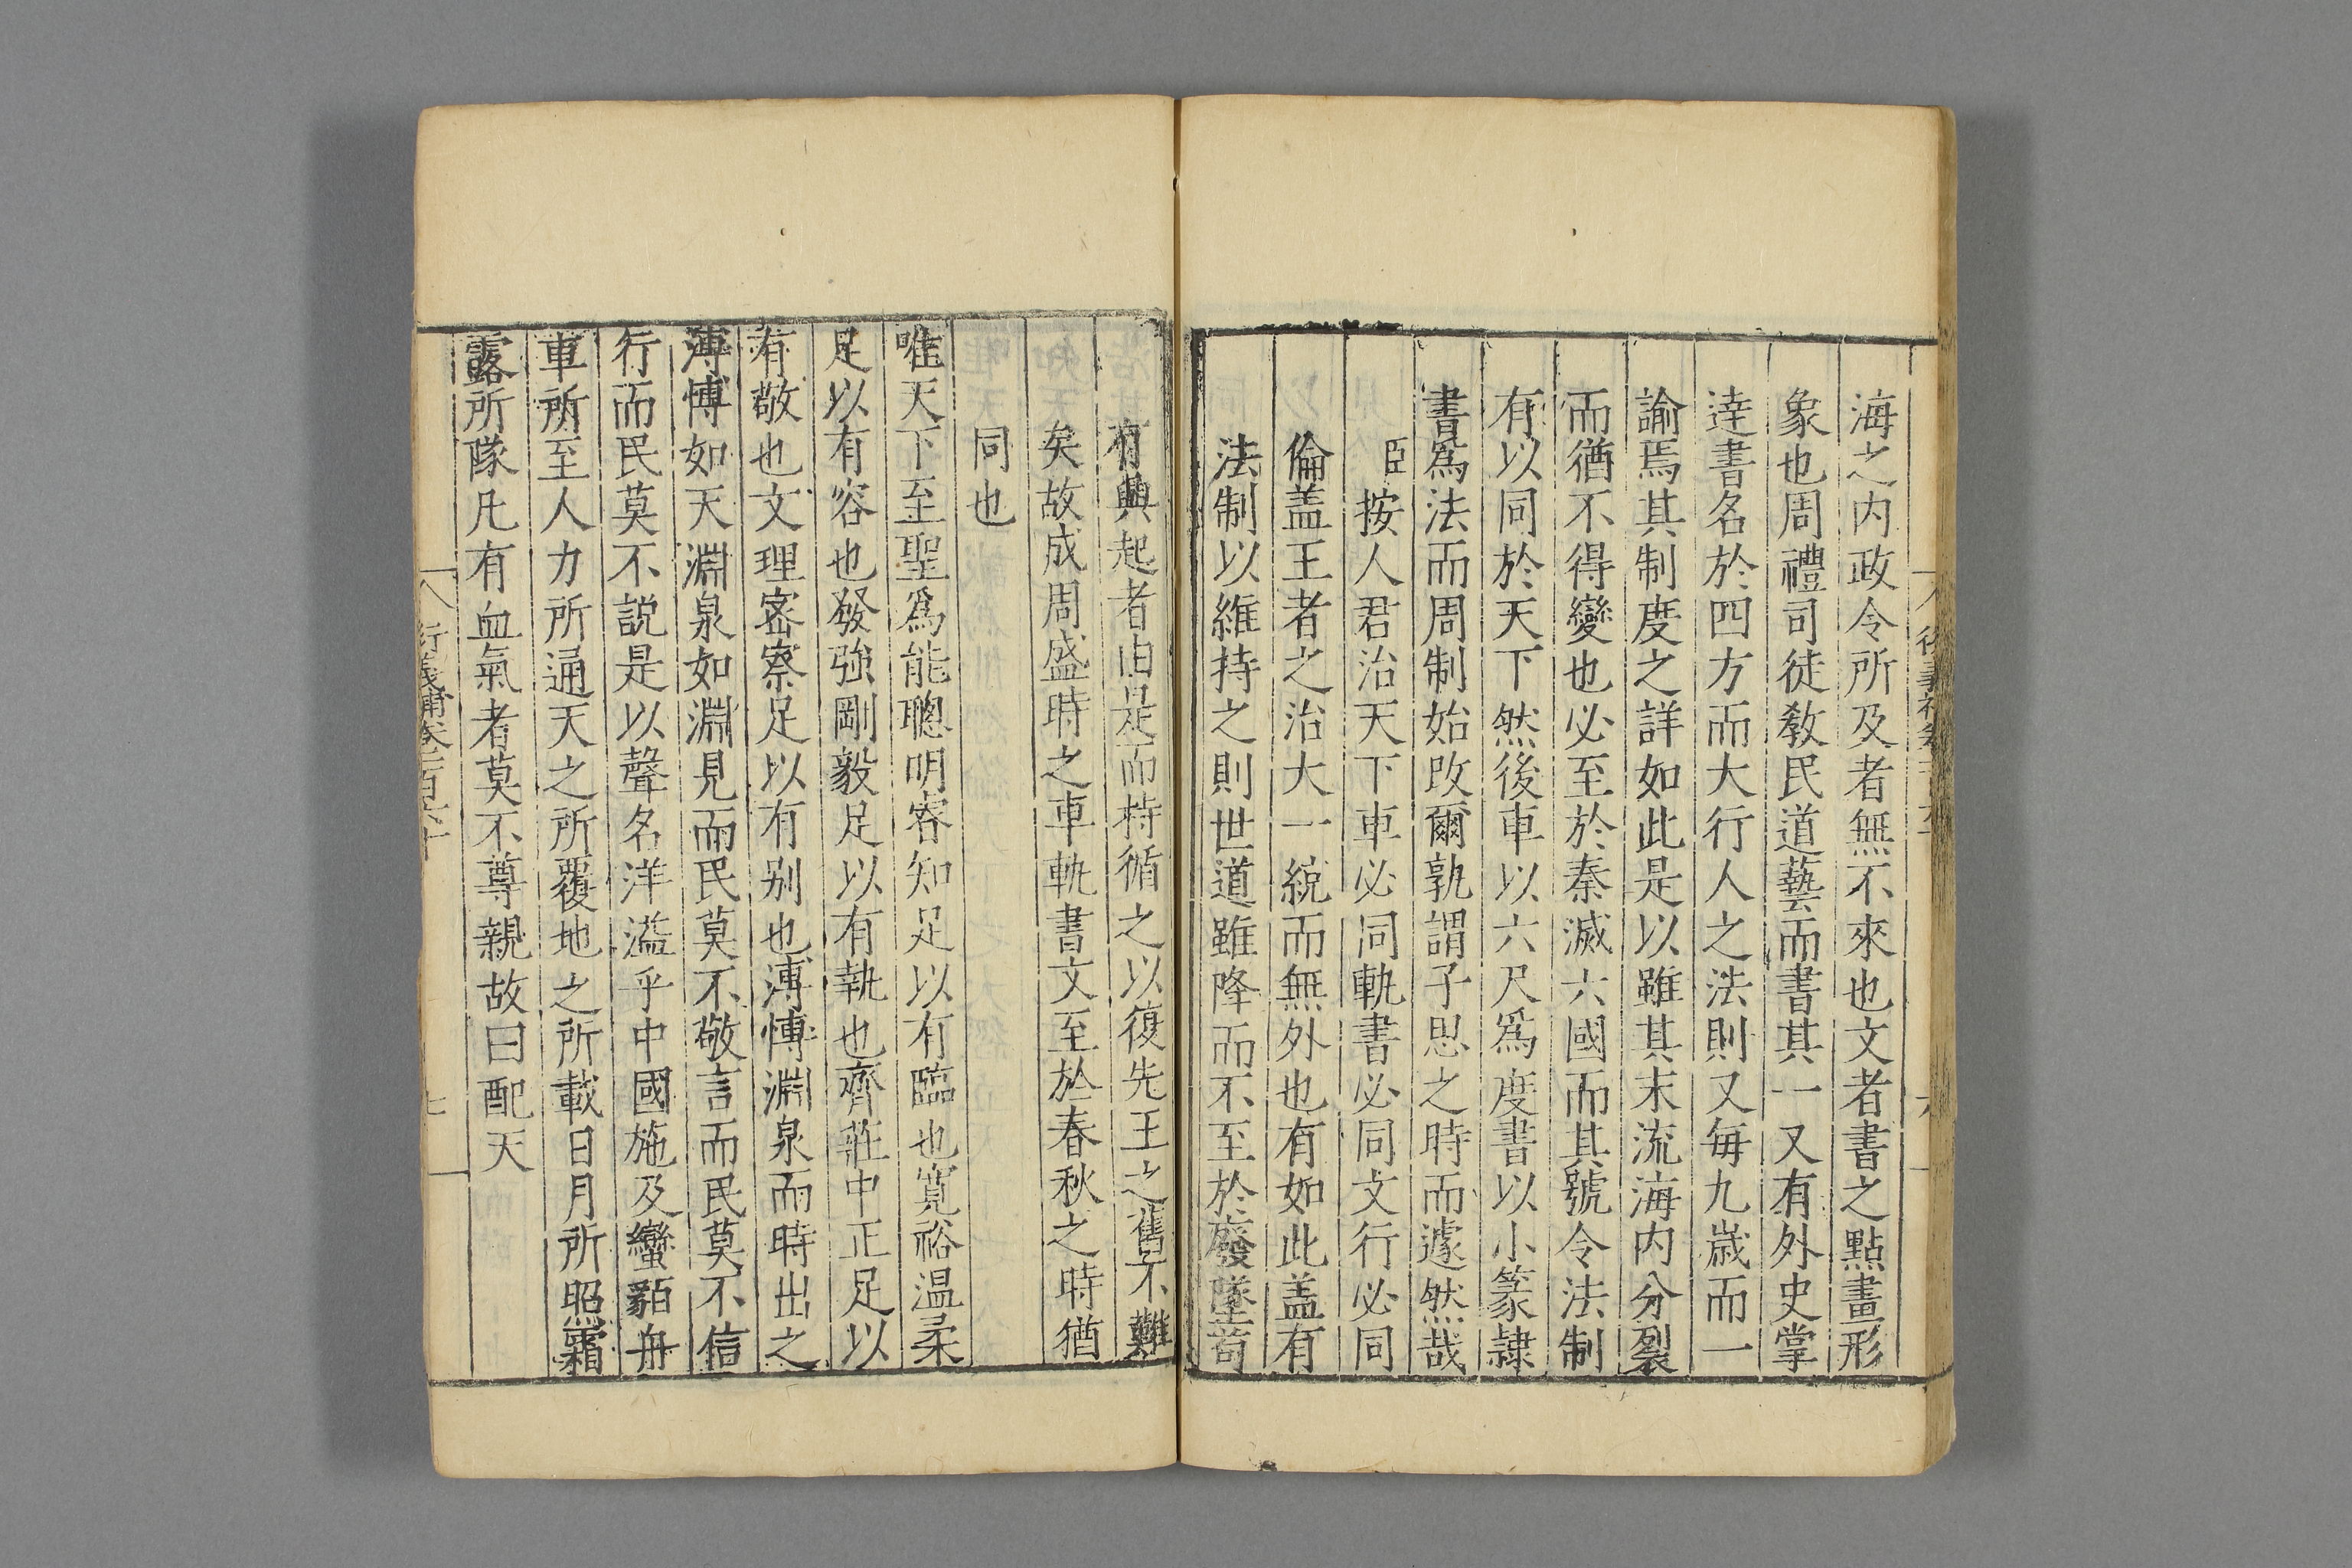 海之内政令所及者無不來也文者書之點畫形
象也周禮司徒教民道藝而書其一又有外史掌
達書名於四方而大行人之法則又每九歳而一
諭焉其制度之詳如此是以雖其末流海内分裂
而猶不得變也必至於秦滅六國而其號令法制
有以同於天下然後車以六尺爲度書以小篆隷
書爲法而周制始改爾孰謂子思之時而遽然哉
臣按人君治天下車必同軌書必同文行必同
倫盖王者之治大一統而無外也有如此盖有
法制以維持之則世道雖降而不至於廢墜苟
有興起者由是而持循之以復先王之舊不難
矣故成周盛時之車軌書文至於春秋之時猶
同也
唯天下至聖爲能聰明睿知足以有臨也寛裕温柔
足以有容也發強剛毅足以有執也齊莊中正足以
有敬也文理密察足以有别也溥愽淵泉而時出之
溥愽如天淵泉如淵見而民莫不敬言而民莫不信
行而民莫不説是以聲名洋溢乎中國施及蠻貊舟
車所至人力所通天之所覆地之所載日月所照霜
露所隊凡有血氣者莫不尊親故曰配天
衍義補卷一百六十
七